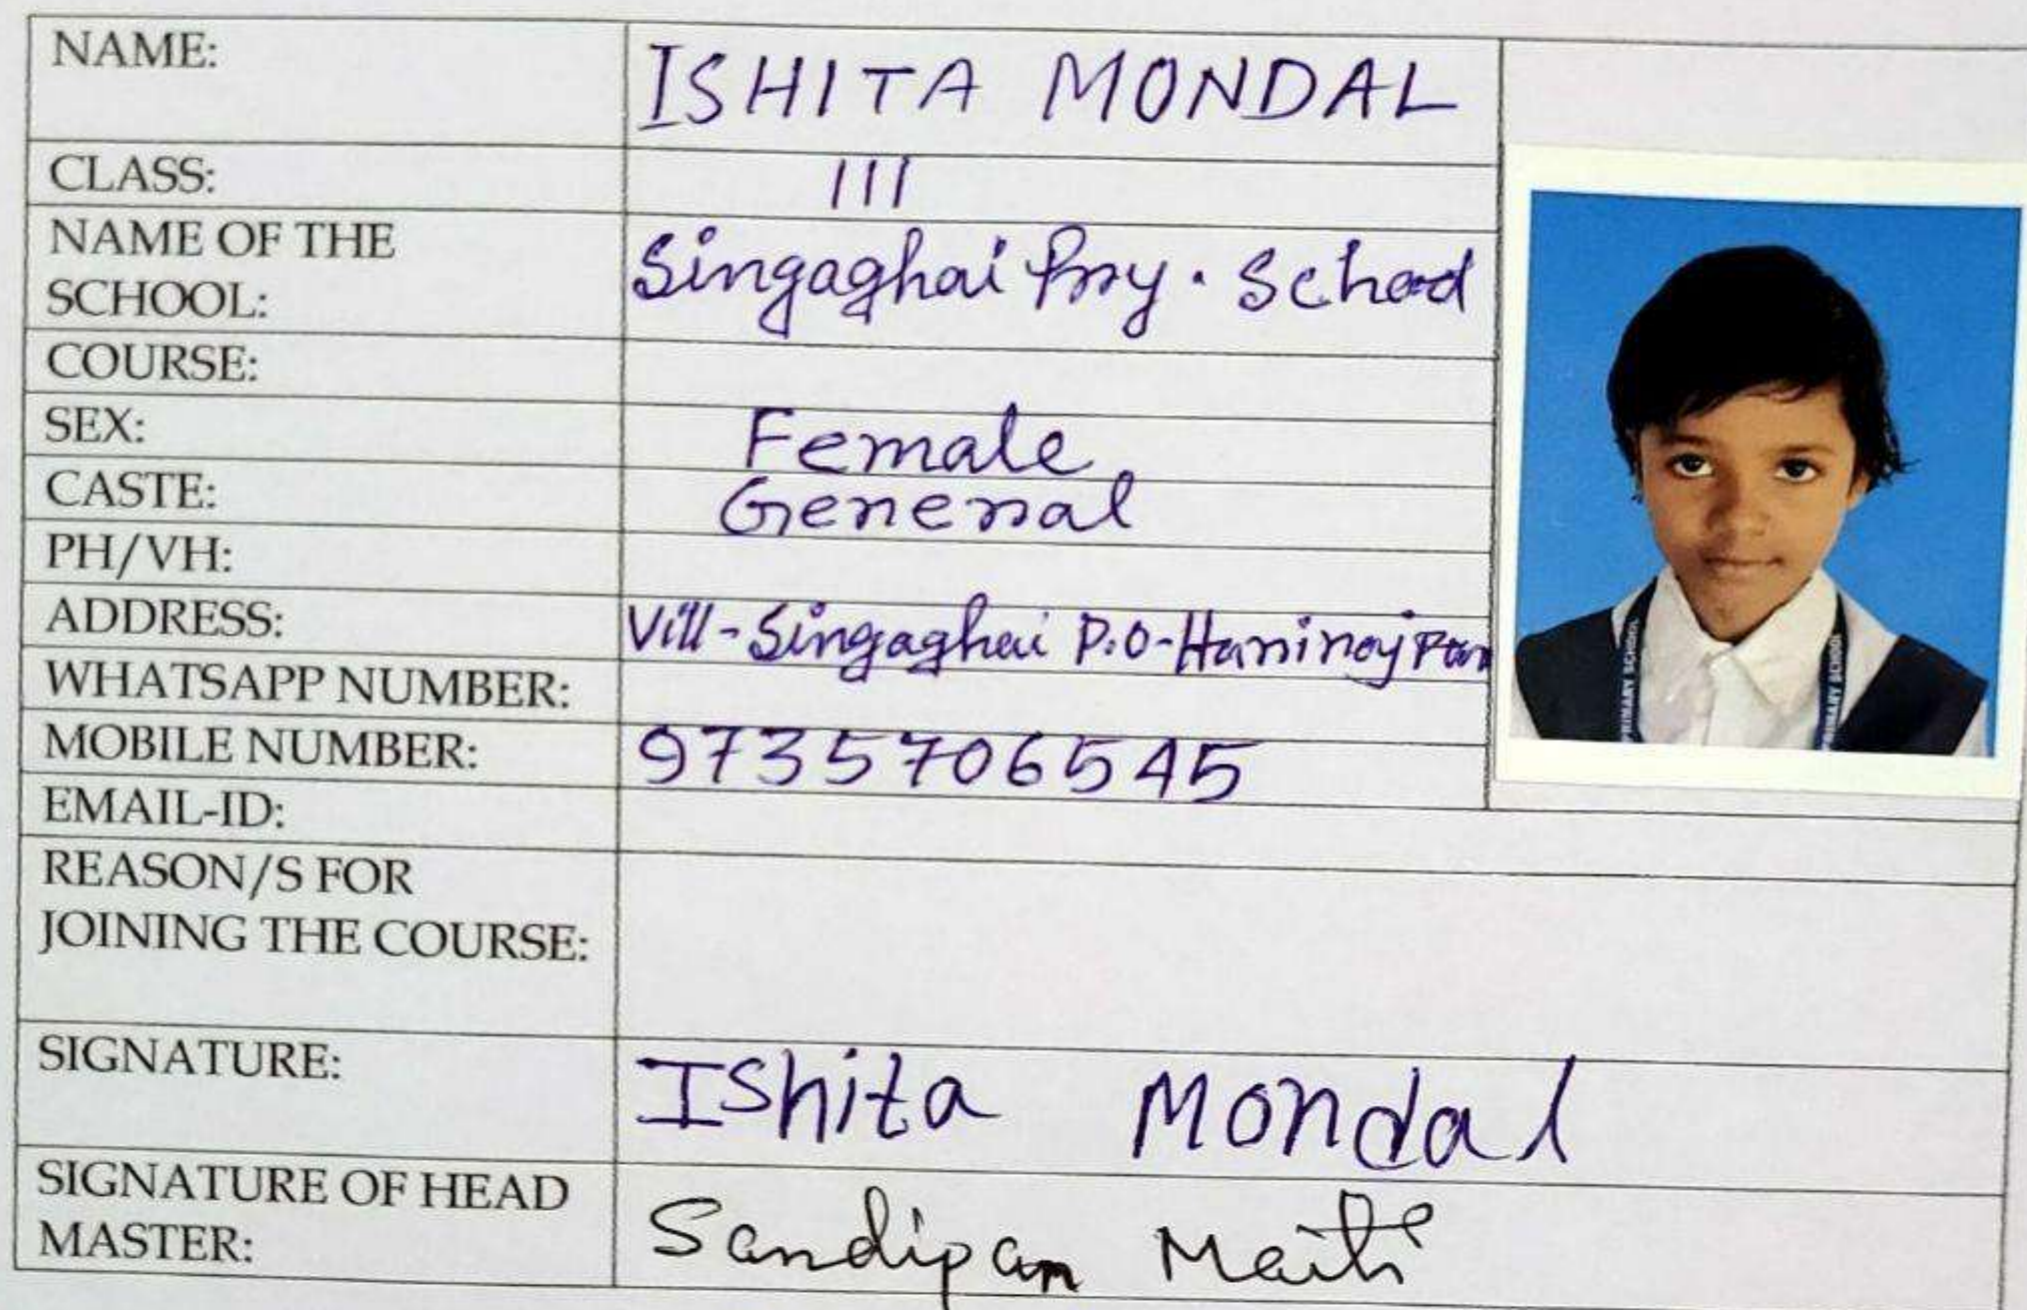 NAME: ISHITA MONDAL
CLASS: III
NAME OF THE SCHOOL: Singaghai Pry. School
COURSE:
SEX: Female
CASTE: General
PH/VH:
ADDRESS: Vill-Singaghai P.O-
WHATSAPP NUMBER:
MOBILE NUMBER: 9735706545
EMAIL-ID:
REASON/S FOR
JOINING THE COURSE:
SIGNATURE: Ishita Mondal
SIGNATURE OF HEAD MASTER: Sandipan Maiti
PRIMARY SCHOOL
PRIMARY SCHOOL